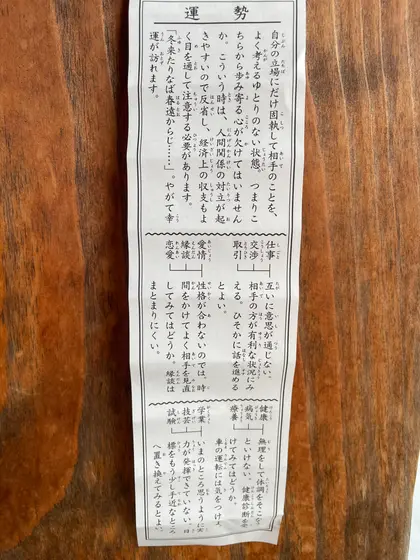 運勢
自分の立場にだけ固執して相手のことを、
よく考えるゆとりのない状態、つまりこ
ちらから歩み寄る心が欠けてはいません
か。こういう時は、人間関係の対立が起
きやすいので反省し、経済上の収支もよ
く目を通して注意する必要があります。
「冬来たりなば春遠からじ……」。やがて幸
運が訪れます。
仕事
交渉
取引
互いに意思が通じない。
相手の方が有利な状況にみ
える。ひそかに話を進める
とよい。
愛情
縁談
恋愛
性格が合わないのでは、時
間をかけてよく相手を見直
してみてはどうか。縁談は
まとまりにくい。
健康
病気
療養
無理をして体調をそこをう
といけない、健康診断を受
けてみてはどうか。
車の運転には気をつけよ。
学業
技芸
試験
いまのところ思うように実
力が発揮できていない。目
標をもう少し手近なところ
へ置き換えてみるとよい。